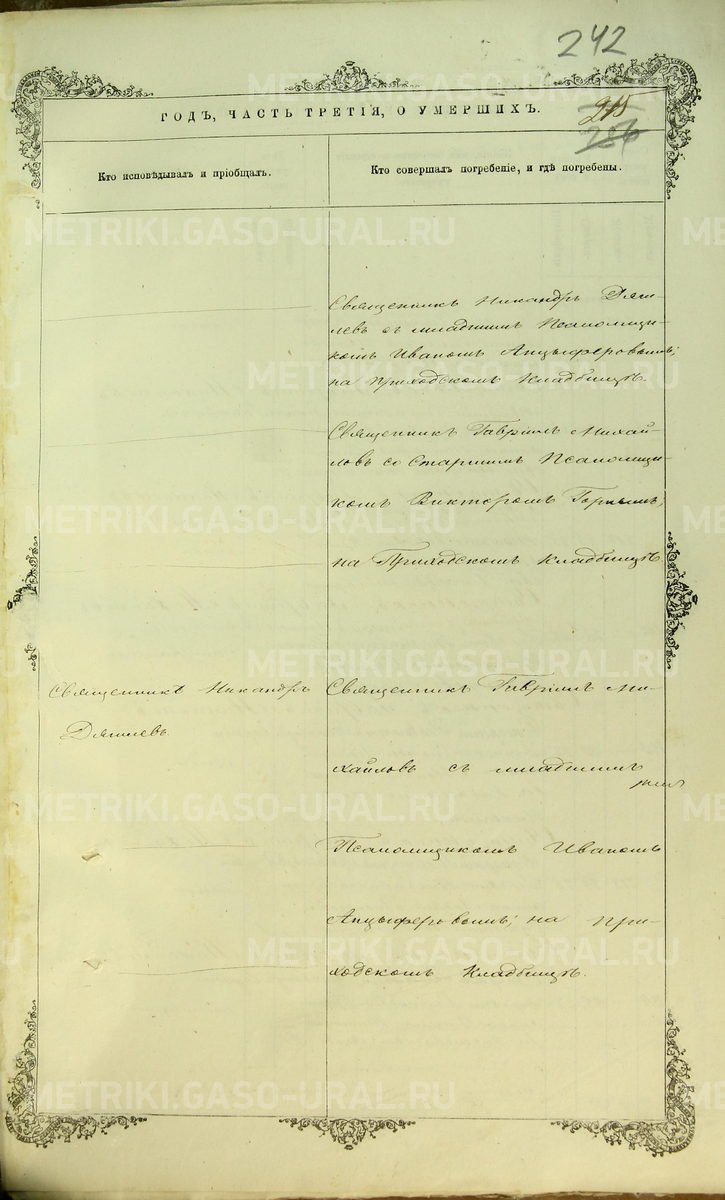 242
ГОДЪ, ЧАСТЬ ТРЕТІЯ, О УМЕРШИХЪ.
Кто исповѣдывалъ и пріобщалъ.
Кто совершалъ погребеніе, и гдѣ погребены.
Священникъ Никандръ Дяги-
левъ съ младшимъ Псаломщи-
комъ Иваномъ Анцыферовымъ;
на приходскомъ кладбищѣ.
Священникъ Гавріилъ Михай-
ловъ со старшимъ Псаломщи-
комъ Викторомъ
на Приходскомъ кладбищѣ
Священникъ Никандръ
Дягилевъ.
Священникъ Гавріилъ Ми-
хайловъ съ младшимъ
Псаломщикомъ Иваномъ
Анцыферовымъ; на при-
ходскомъ кладбищѣ.
METRIKI.GASO-URAL.RU